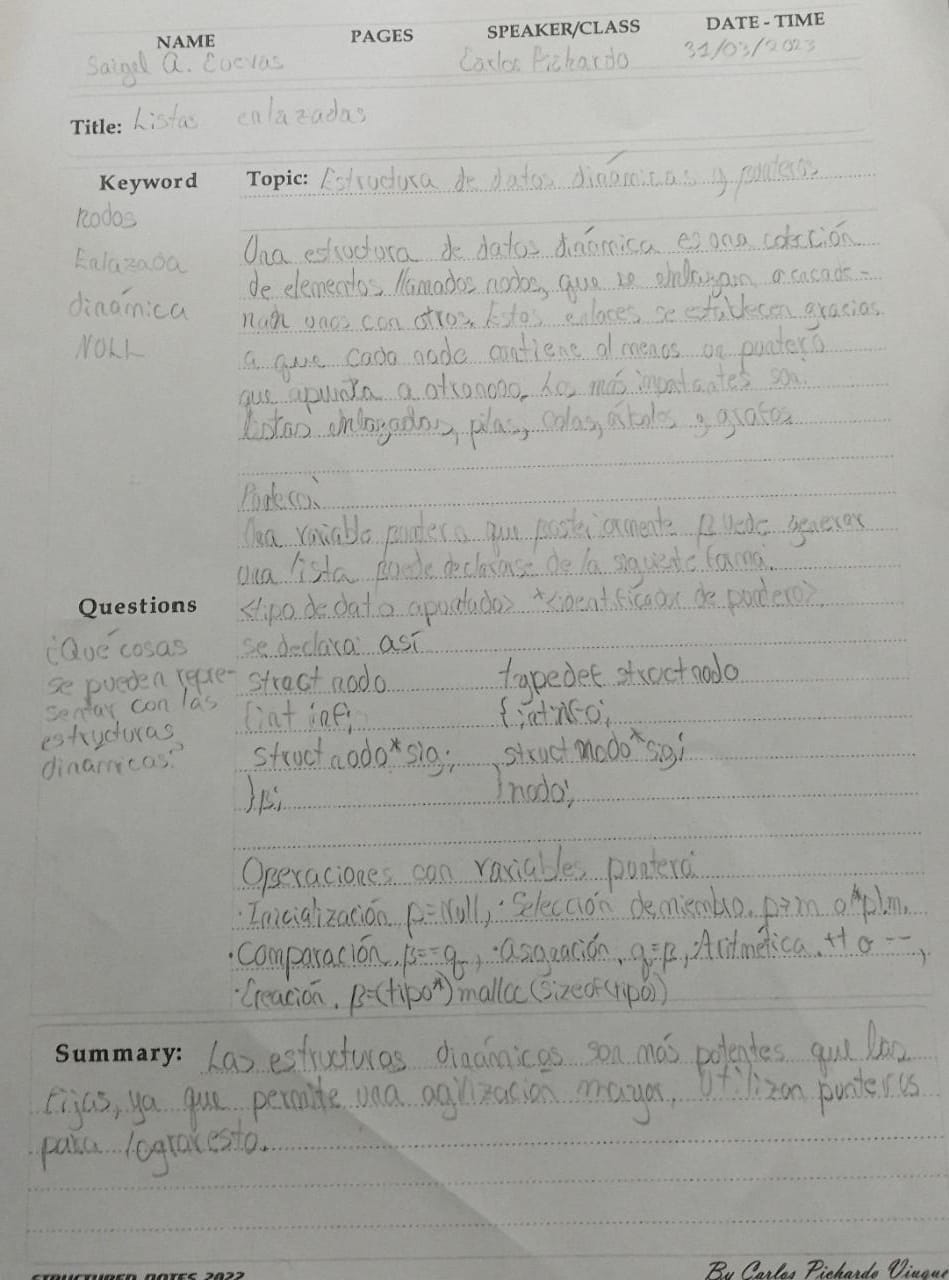 NAME PAGES SPEAKER/CLASS DATE - TIME
Saigel A. Cuevas Carlos Pichardo 31/03/2023
Title: Listas enlazadas
Keyword
Nodos
Enlazada
dinámica
NULL
Topic: Estructura de datos dinámicas y punteros
Una estructura de datos dinámica es una colección
de elementos llamados nodos, que se enlazan o
unos con otros. Estos enlaces se establecen gracias
a que cada nodo contiene al menos un puntero
que apunta a otro nodo. Los más importantes son
listas enlazadas, pilas, colas, árboles y grafos
Puntero:
Una variable puntero que posteriormente puede generar
una lista puede declararse de la siguiente forma.
<tipo de dato apuntado> *<identificador de puntero>,
se declara así
struct nodo typedef struct nodo
{int inf; {int info;
struct nodo*sig; struct nodo*sig;
}p; }nodo;
Questions
¿Qué cosas
se pueden repre-
sentar con las
estructuras
dinamicas?
Operaciones con variables puntero
·Inicialización p=Null, ·Selección de miembro. p→m o *p|m.
·Comparación. p==q, ·asignación, q=p, Aritmética. ++ o --,
·Creación. p=(tipo*)malloc(sizeof(tipo))
Summary: Las estructuras dinámicas son más potentes que las
fijas, ya que permite una agilización mayor. Utilizan punteros
para lograr esto.
STRUCTURED NOTES 2022 By Carlos Pichardo Viuque